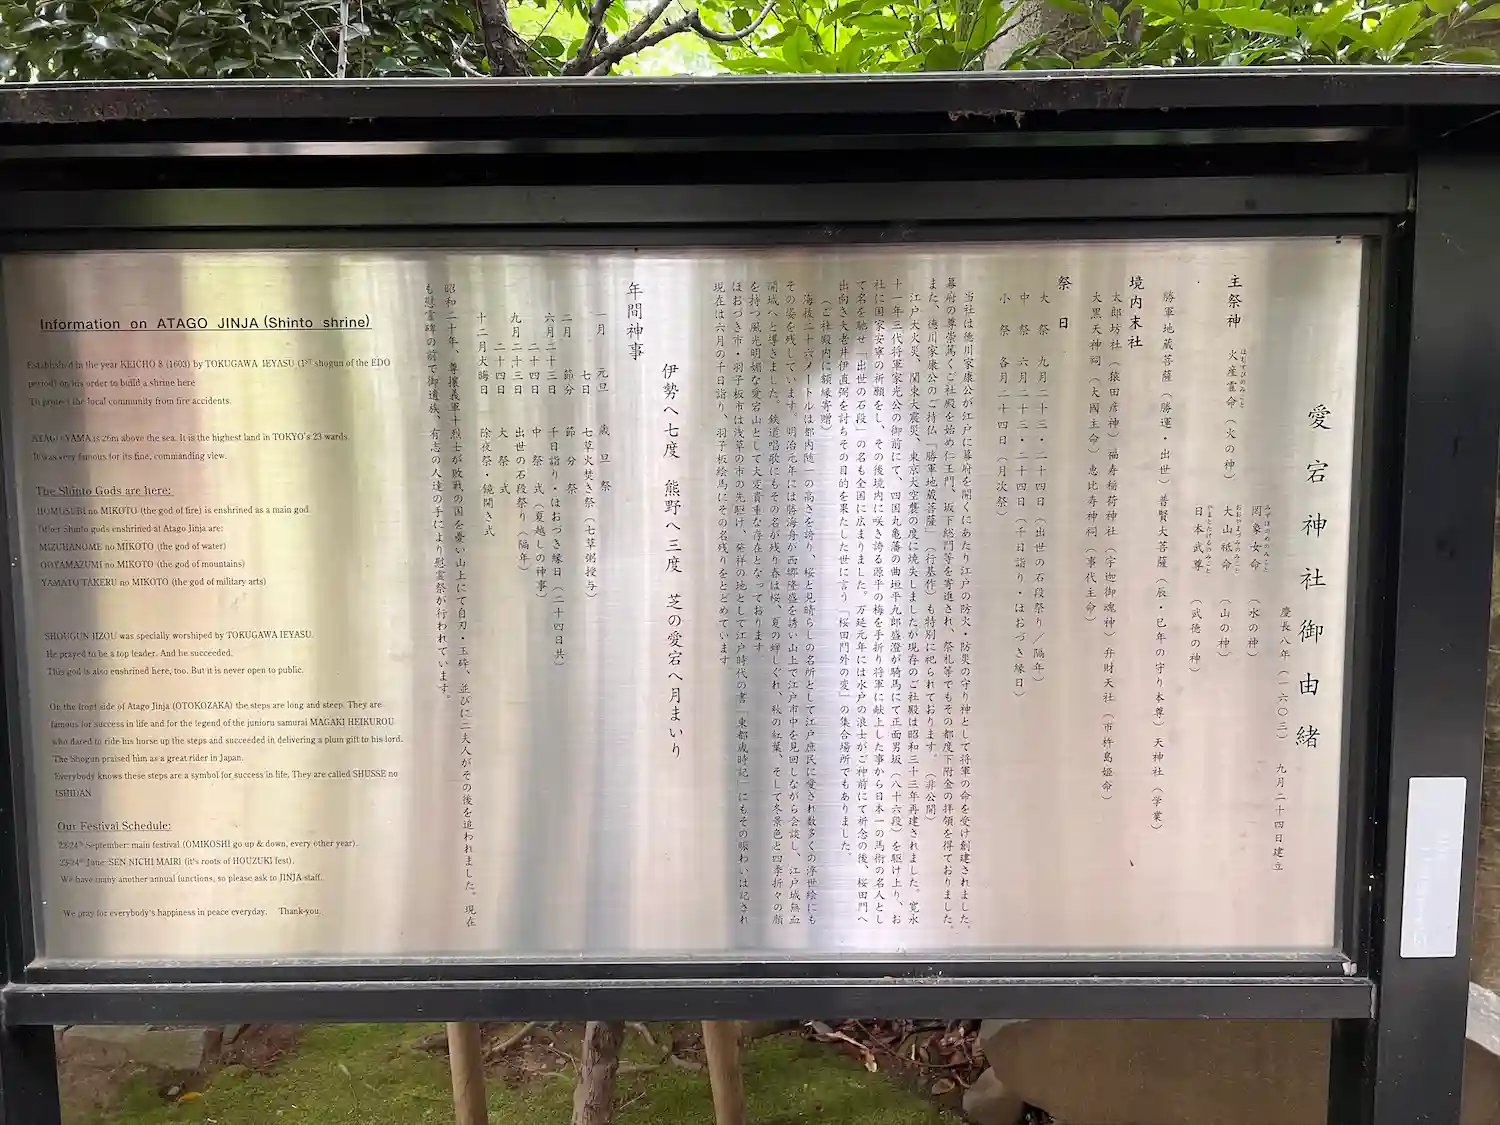 愛宕神社御由緒
慶長八年(一六〇三) 九月二十四日建立
主祭神 火産霊命(火の神)
ほむすびのみこと
罔象女命(水の神)
みずはのめのみこと
大山祗命(山の神)
おおやまづみのみこと
日本武尊(武徳の神)
やまとたけるのみこと
勝軍地蔵菩薩(勝運・出世)普賢大菩薩(辰・巳年の守り本尊)天神社(学業)
境内末社
太郎坊社(猿田彦神)福寿稲荷神社(宇迦御魂神)弁財天社(市杵島姫命)
大黒天神祠(大國主命)恵比寿神祠(事代主命)
祭日
大 祭 九月二十三・二十四日(出世の石段祭り/隔年)
中 祭 六月二十三・二十四日(千日詣り・ほおづき縁日)
小 祭 各月二十四日(月次祭)
当社は徳川家康公が江戸に幕府を開くにあたり江戸の防火・防災の守り神として将軍の命を受け創建されました。
幕府の尊崇篤くご社殿を始め仁王門、坂下総門等を寄進され、祭礼等でもその都度下附金の拝領を得ておりました。
また、徳川家康公のご持仏「勝軍地蔵菩薩」(行基作)も特別に祀られております。(非公開)
江戸大火災、関東大震災、東京大空襲の度に焼失しましたが現存のご社殿は昭和三十三年再建されました。寛永
十一年三代将軍家光公の御前にて、四国丸亀藩の曲垣平九郎盛澄が騎馬にて正面男坂(八十六段)を駆け上り、お
社に国家安寧の祈願をし、その後境内に咲き誇る源平の梅を手折り将軍に献上した事から日本一の馬術の名人とし
て名を馳せ「出世の石段」の名も全国に広まりました。万延元年には水戸の浪士がご神前にて祈念の後、桜田門へ
出向き大老井伊直弼を討ちその目的を果たした世に言う「桜田門外の変」の集合場所でもありました。
(ご社殿内に額縁寄贈)
海抜二十六メートルは都内随一の高さを誇り、桜と見晴らしの名所として江戸庶民に愛され数多くの浮世絵にも
その姿を残しています。明治元年には勝海舟が西郷隆盛を誘い山上で江戸市中を見回しながら会談し、江戸城無血
開城へと導きました。鉄道唱歌にもその名が残り春は桜、夏の蝉しぐれ、秋の紅葉、そして冬景色と四季折々の顔
を持つ風光明媚な愛宕山として大変貴重な存在となっております
ほおづき市・羽子板市は浅草の市の先駆け、発祥の地として江戸時代の書「東都歳時記」にもその賑わいは記され
現在は六月の千日詣り、羽子板絵馬にその名残りをとどめています
伊勢へ七度 熊野へ三度 芝の愛宕へ月まいり
年間神事
一月 元旦 歳旦祭
七日 七草火焚き祭(七草粥授与)
二月 節分 節分祭
六月二十三日 千日詣り・ほおづき縁日(二十四日共)
二十四日 中祭式(夏越しの神事)
九月二十三日 出世の石段祭り(隔年)
二十四日 大祭式
十二月大晦日 除夜祭・鏡開き式
昭和二十年、尊攘義軍十烈士が敗戦の国を憂い山上にて自刃・玉砕、並びに二夫人がその後を追われました。現在
も慰霊碑の前で御遺族、有志の人達の手により慰霊祭が行われています。
Information on ATAGO JINJA (Shinto shrine)
Established in the year KEICHO 8 (1603) by TOKUGAWA IEYASU (1ST shogun of the EDO
period) on his order to build a shrine here
To protect the local community from fire accidents.
ATAGOYAMA is 26m above the sea. It is the highest land in TOKYO's 23 wards.
It was very famous for its fine, commanding view.
The Shinto Gods are here:
HOMUSUBI no MIKOTO (the god of fire) is enshrined as a main god
Other Shinto gods enshrined at Atago Jinja are:
MIZUHANOME no MIKOTO (the god of water)
OOYAMAZUMI no MIKOTO (the god of mountains)
YAMATO TAKERU no MIKOTO (the god of military arts)
SHOUGUN JIZOU was specially worshiped by TOKUGAWA IEYASU.
He prayed to be a top leader. And he succeeded.
This god is also enshrined here, too. But it is never open to public.
On the front side of Atago Jinja (OTOKOZAKA) the steps are long and steep. They are
famous for success in life and for the legend of the junioru samurai MAGAKI HEIKUROU
who dared to ride his horse up the steps and succeeded in delivering a plum gift to his lord.
The Shogun praised him as a great rider in Japan.
Everybody knows these steps are a symbol for success in life. They are called SHUSSE no
ISHIDAN
Our Festival Schedule:
23-24th September: main festival (OMIKOSHI go up & down, every other year).
23-24th June: SEN NICHI MAIRI (it's roots of HOUZUKI fest).
We have many another annual functions, so please ask to JINJA staff.
We pray for everybody's happiness in peace everyday. Thank-you